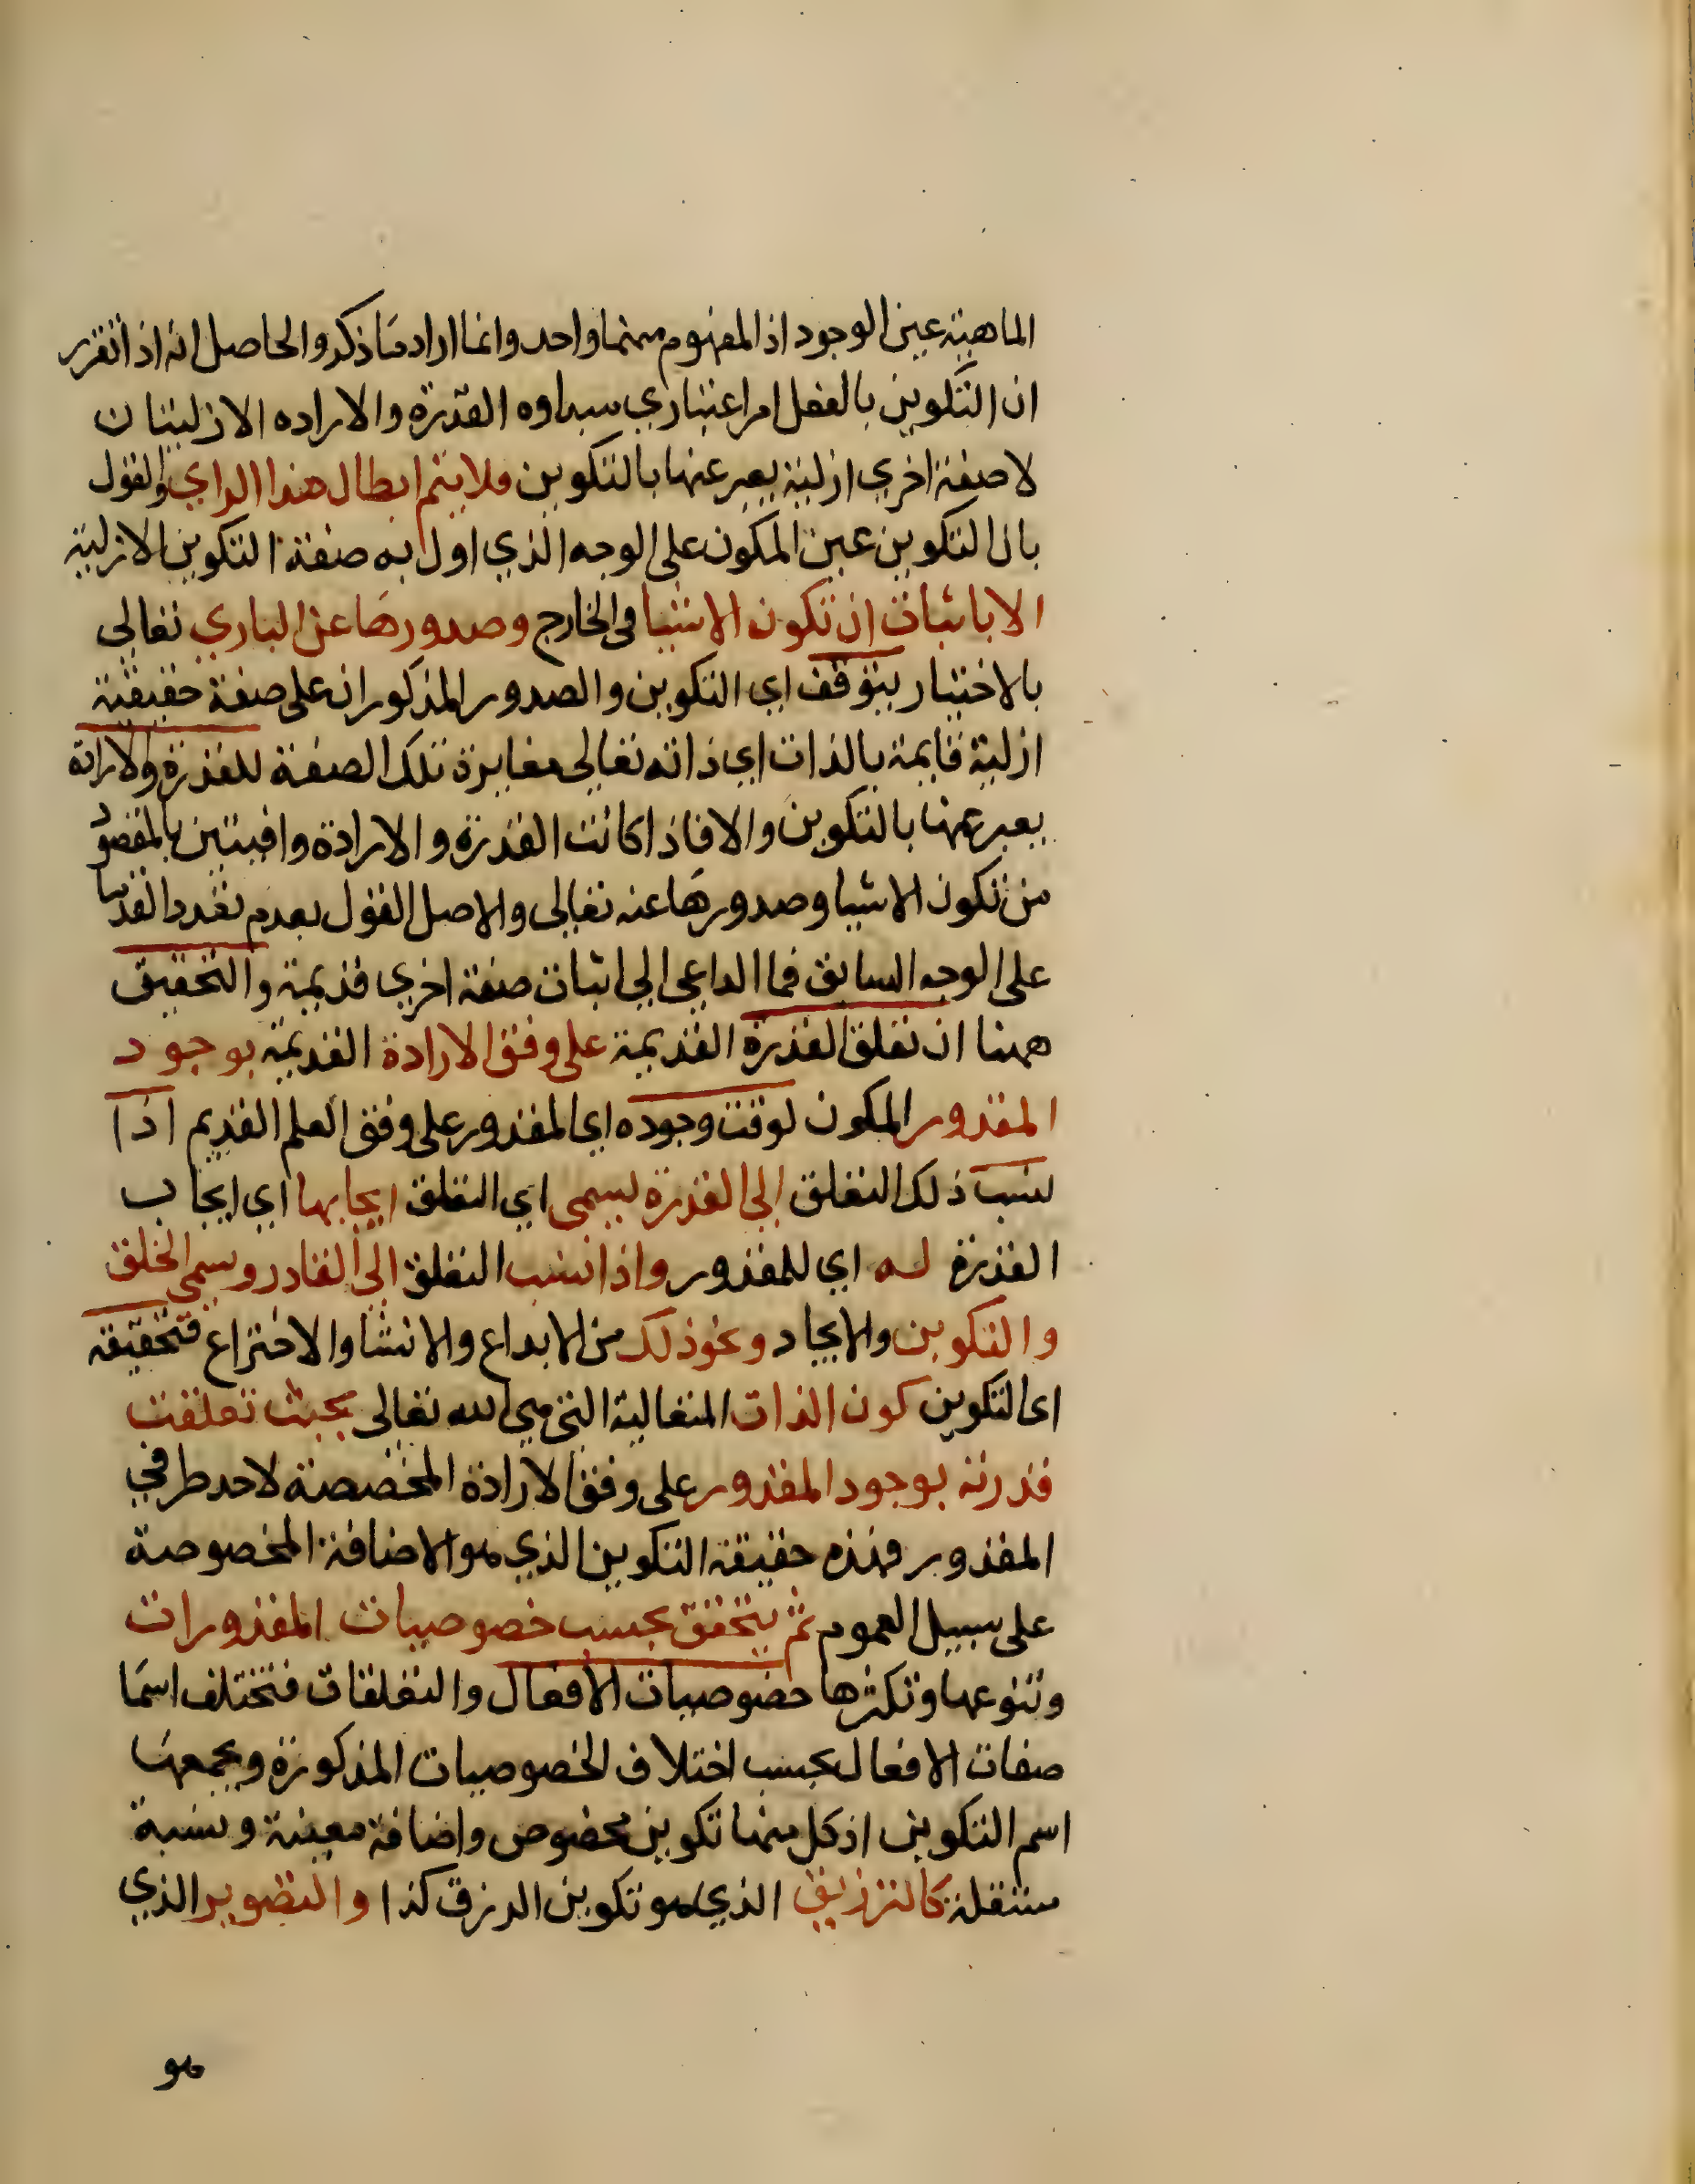 الماهية عين الوجود اذ المفهوم منهما واحد وانما اراد ما ذكر والحاصل انه اذا تقرر
ان التكوين بالفعل امر اعتباري مبداوه القدرة والاراده الازليتان
لا صفة اخري ازلية يعبر عنها بالتكوين فلا يتم ابطال هذا الراي والقول
بان التكوين عين المكون على الوجه الذي اول به صفة التكوين الازلية
الا باثبات ان تكون الاشيا في الخارج وصدورها عن الباري تعالى
بالاختيار يتوقف اي التكوين والصدور المذكوران على صفة حقيقية
ازلية قايمة بالذات اي ذاته تعالى مغايرة تلك الصفة للقدرة والارادة
يعبر عنها بالتكوين والا فاذا كانت القدرة والارادة وافيتين بالمقصود
من تكون الاشيا وصدورها عنه تعالى والاصل القول بعدم تعدد القدما
على الوجه السابق فما الداعي الي اثبات صفة اخري قديمة والتحقيق
ههنا ان تعلق القدرة القديمة على وفق الارادة القديمة بوجود
المقدور المكون لوقت وجوده اي المقدور على وفق العلم القديم اذا
نسب ذلك التعلق الى القدرة يسمى اي التعلق ايجابها اي ايجاب
القدرة له اي للمقدور واذا نسب التعلق الى القادر وسمي الخلق
والتكوين والايجاد ونحو ذلك من الابداع والانشا والاختراع فتحقيقه
اي التكوين كون الذات المتعالية التي هي الله تعالى بحيث تعلقت
قدرته بوجود المقدور على وفق الارادة المخصصة لاحد طرفي
المقدور فهذه حقيقة التكوين الذي هو الاضافة المخصوصة
على سبيل العموم ثم يتحقق بحسب خصوصيات المقدورات
وتنوعها وتكثرها خصوصيات الافعال والتعلقات فتختلف اسما
صفات الافعال بحسب اختلاف الخصوصيات المذكورة ويجمعها
اسم التكوين اذ كل منها تكوين مخصوص واضافة معينة ونسبة
مستقلة كالترزيق الذي هو تكوين الرزق كذا والتصوير الذي
هو